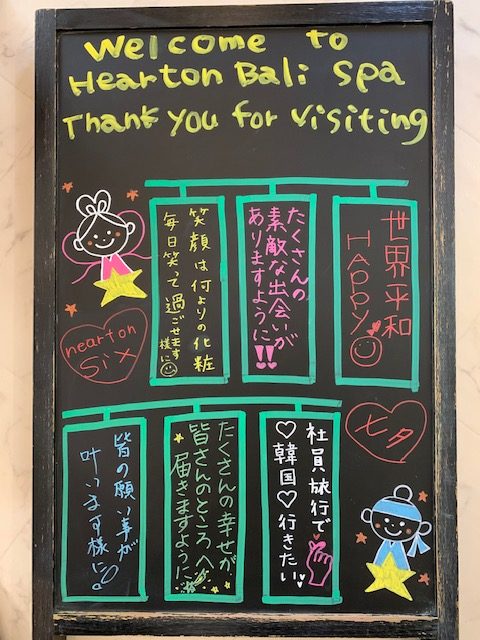 Welcome to
Hearton Bali Spa
Thank you for visiting
世界平和
HAPPY
たくさんの
素敵な出会いが
ありますように!!
笑顔は何よりの化粧
毎日笑って過ごせます
様に
hearton
six
七夕
社員旅行で
♡韓国♡行きたい
たくさんの幸せが
皆さんのところへ
届きますように
皆の願い事が
叶います様に